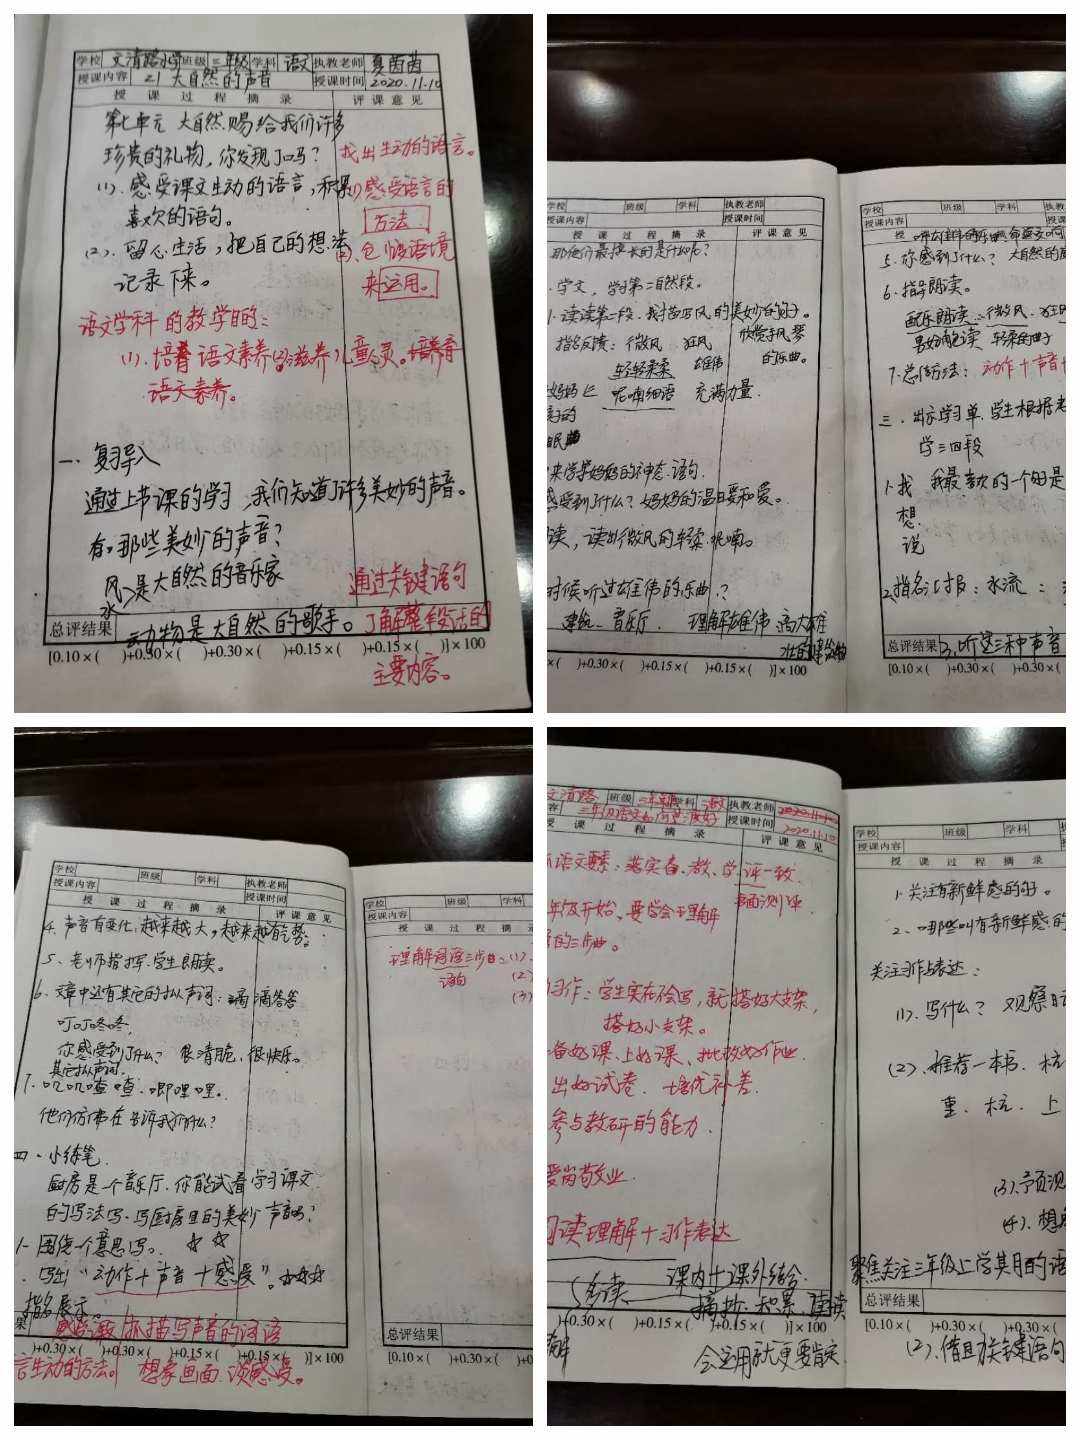 学校 文清路小学 班级 三年级 学科 语文 执教老师 夏茵茵
授课内容 21 大自然的声音 授课时间 2020.11.10
授 课 过 程 摘 录 评 课 意 见
第七单元 大自然赐给我们许多
珍贵的礼物，你发现了吗？ 找出生动的语言。
(1)、感受课文生动的语言，积累 感受语言的
喜欢的语句。 方法
(2)、留心生活，把自己的想法
记录下来。 来运用。
语文学科的教学目的：
(1)、培养语文素养
语文素养。
一、复习导入
通过上节课的学习，我们知道了许多美妙的声音。
有哪些美妙的声音？
风 是大自然的音乐家 通过关键语句
水
总评结果 动物是大自然的歌手。了解整段话的
[0.10×( )+0.30×( )+0.30×( )+0.15×( )+0.15×( )]×100
主要内容。
学校 班级 学科 执教老师
授课内容 授课时间
授 课 过 程 摘 录 评 课 意 见
学文，学习第二自然段。
1. 读读第二段，我找描写风的美妙的句子。
指名反馈：微风 狂风 欣赏手风琴
轻轻柔柔 雄伟 的乐曲。
呢喃细语 充满力量.
感受到了什么？妈妈的温日要和爱。
读，读出微风的轻柔.呢喃。
时候听过雄伟的乐曲.？
建筑 音乐厅 理解雄伟 高大雄
×( )+0.30×( )+0.15×( )+0.15×( )]×100
学校 班级 学科
授课内容
5. 你感到了什么？大自然的
6. 指导朗读。
配乐朗读：微风、狂风
男女生配读 轻柔曲子
7. 总结方法：动作+声音+
三、出示学习单.学生根据
学三四段
1. 找 我最喜欢的一个句是
想
说
2. 指名汇报：水流：
总评结果 3、听这三种声音
[0.10×( )+0.30×( )+0.30×(
学校 班级 学科 执教老师
授课内容 授课时间
授 课 过 程 摘 录 评 课 意 见
4. 声音有变化，越来越大，越来越有气势。
5. 老师指挥.学生朗读。
6. 文章中还有其它的拟声词：滴滴答答
叮叮咚咚，
你感受到了什么？ 很清脆，很快乐。
其它拟声词
7. 叽叽喳喳.唧哩哩。
他们仿佛在告诉我们什么？
四、小练笔
厨房是一个音乐厅.你能试着学习课文
的写法写.写厨房里的美妙声音吗？
1. 围绕一个意思写。☆☆
写出“动作+声音+感受”。☆☆☆
指名展示。
抓描写声音的词语
)+0.30×( )+0.15×( )+0.15×( )]×100
言生动的方法。 想象画面.谈感受。
班级 学科
授课内容
授 课 过 程 摘 录
理解词语三步曲：(1)、
语句 (2)
(3)
总评结果
[0.10×( )+0.30×( )+0.30×(
文清路 班级 三年级 学科 语文 执教老师
授课时间 2020.11.10
授 课 过 程 摘 录 评 课 意 见
语文要素：落实看、教、学、评一致.
年级开始，要学会理解 书面测评
的三步曲。
习作：学生实在不会写，就搭好大支架，
搭好小支架。
备好课、上好课、批改好作业.
出好试卷、培优补差.
参与教研的能力.
爱岗敬业.
阅读理解+习作表达
多读 课内+课外结合.
摘抄、积累、
)+0.30×( )+0.30×( )+0.15×( )+0.15×( )]×100
会运用就更要肯定.
学校 班级 学科
授课内容
授 课 过 程 摘 录
1. 关注有新鲜感的句。
2、哪些叫有新鲜感的
关注习作与表达：
(1)、写什么？ 观察日记
(2)、推荐一本书.
(3)、预测
(4)、想象
聚焦关注三年级上学期的语
总评结果
[0.10×( )+0.30×( )+0.30×(
(2)、借助关键语句